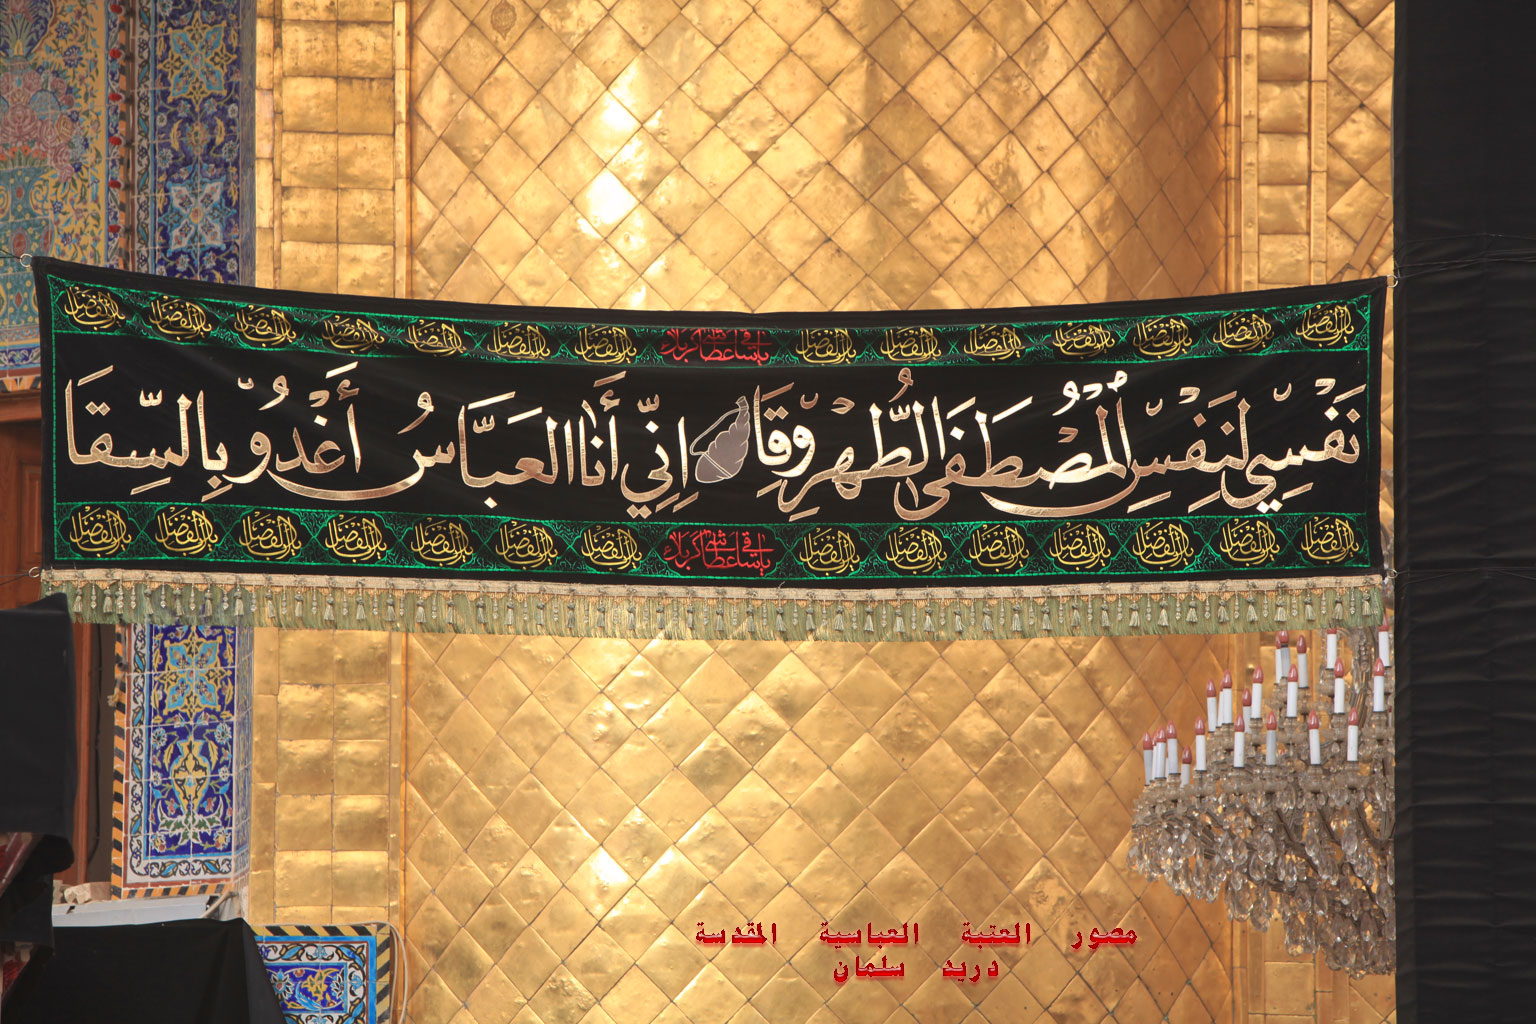 يا أبا الفضل يا أبا الفضل يا أبا الفضل يا أبا الفضل يا أبا الفضل يا أبا الفضل يا أبا الفضل يا ساقي عطاشى كربلاء يا أبا الفضل يا أبا الفضل يا أبا الفضل يا أبا الفضل يا أبا الفضل يا أبا الفضل يا أبا الفضل
نَفْسِي لِنَفْسِ المُصْطَفَى الطُّهْرِ وِقَا إِنِّي أَنَا العَبَّاسُ أَغْدُو بِالسِّقَا
يا أبا الفضل يا أبا الفضل يا أبا الفضل يا أبا الفضل يا أبا الفضل يا أبا الفضل يا أبا الفضل يا ساقي عطاشى كربلاء يا أبا الفضل يا أبا الفضل يا أبا الفضل يا أبا الفضل يا أبا الفضل يا أبا الفضل يا أبا الفضل
مصور العتبة العباسية المقدسة
دريد سلمان